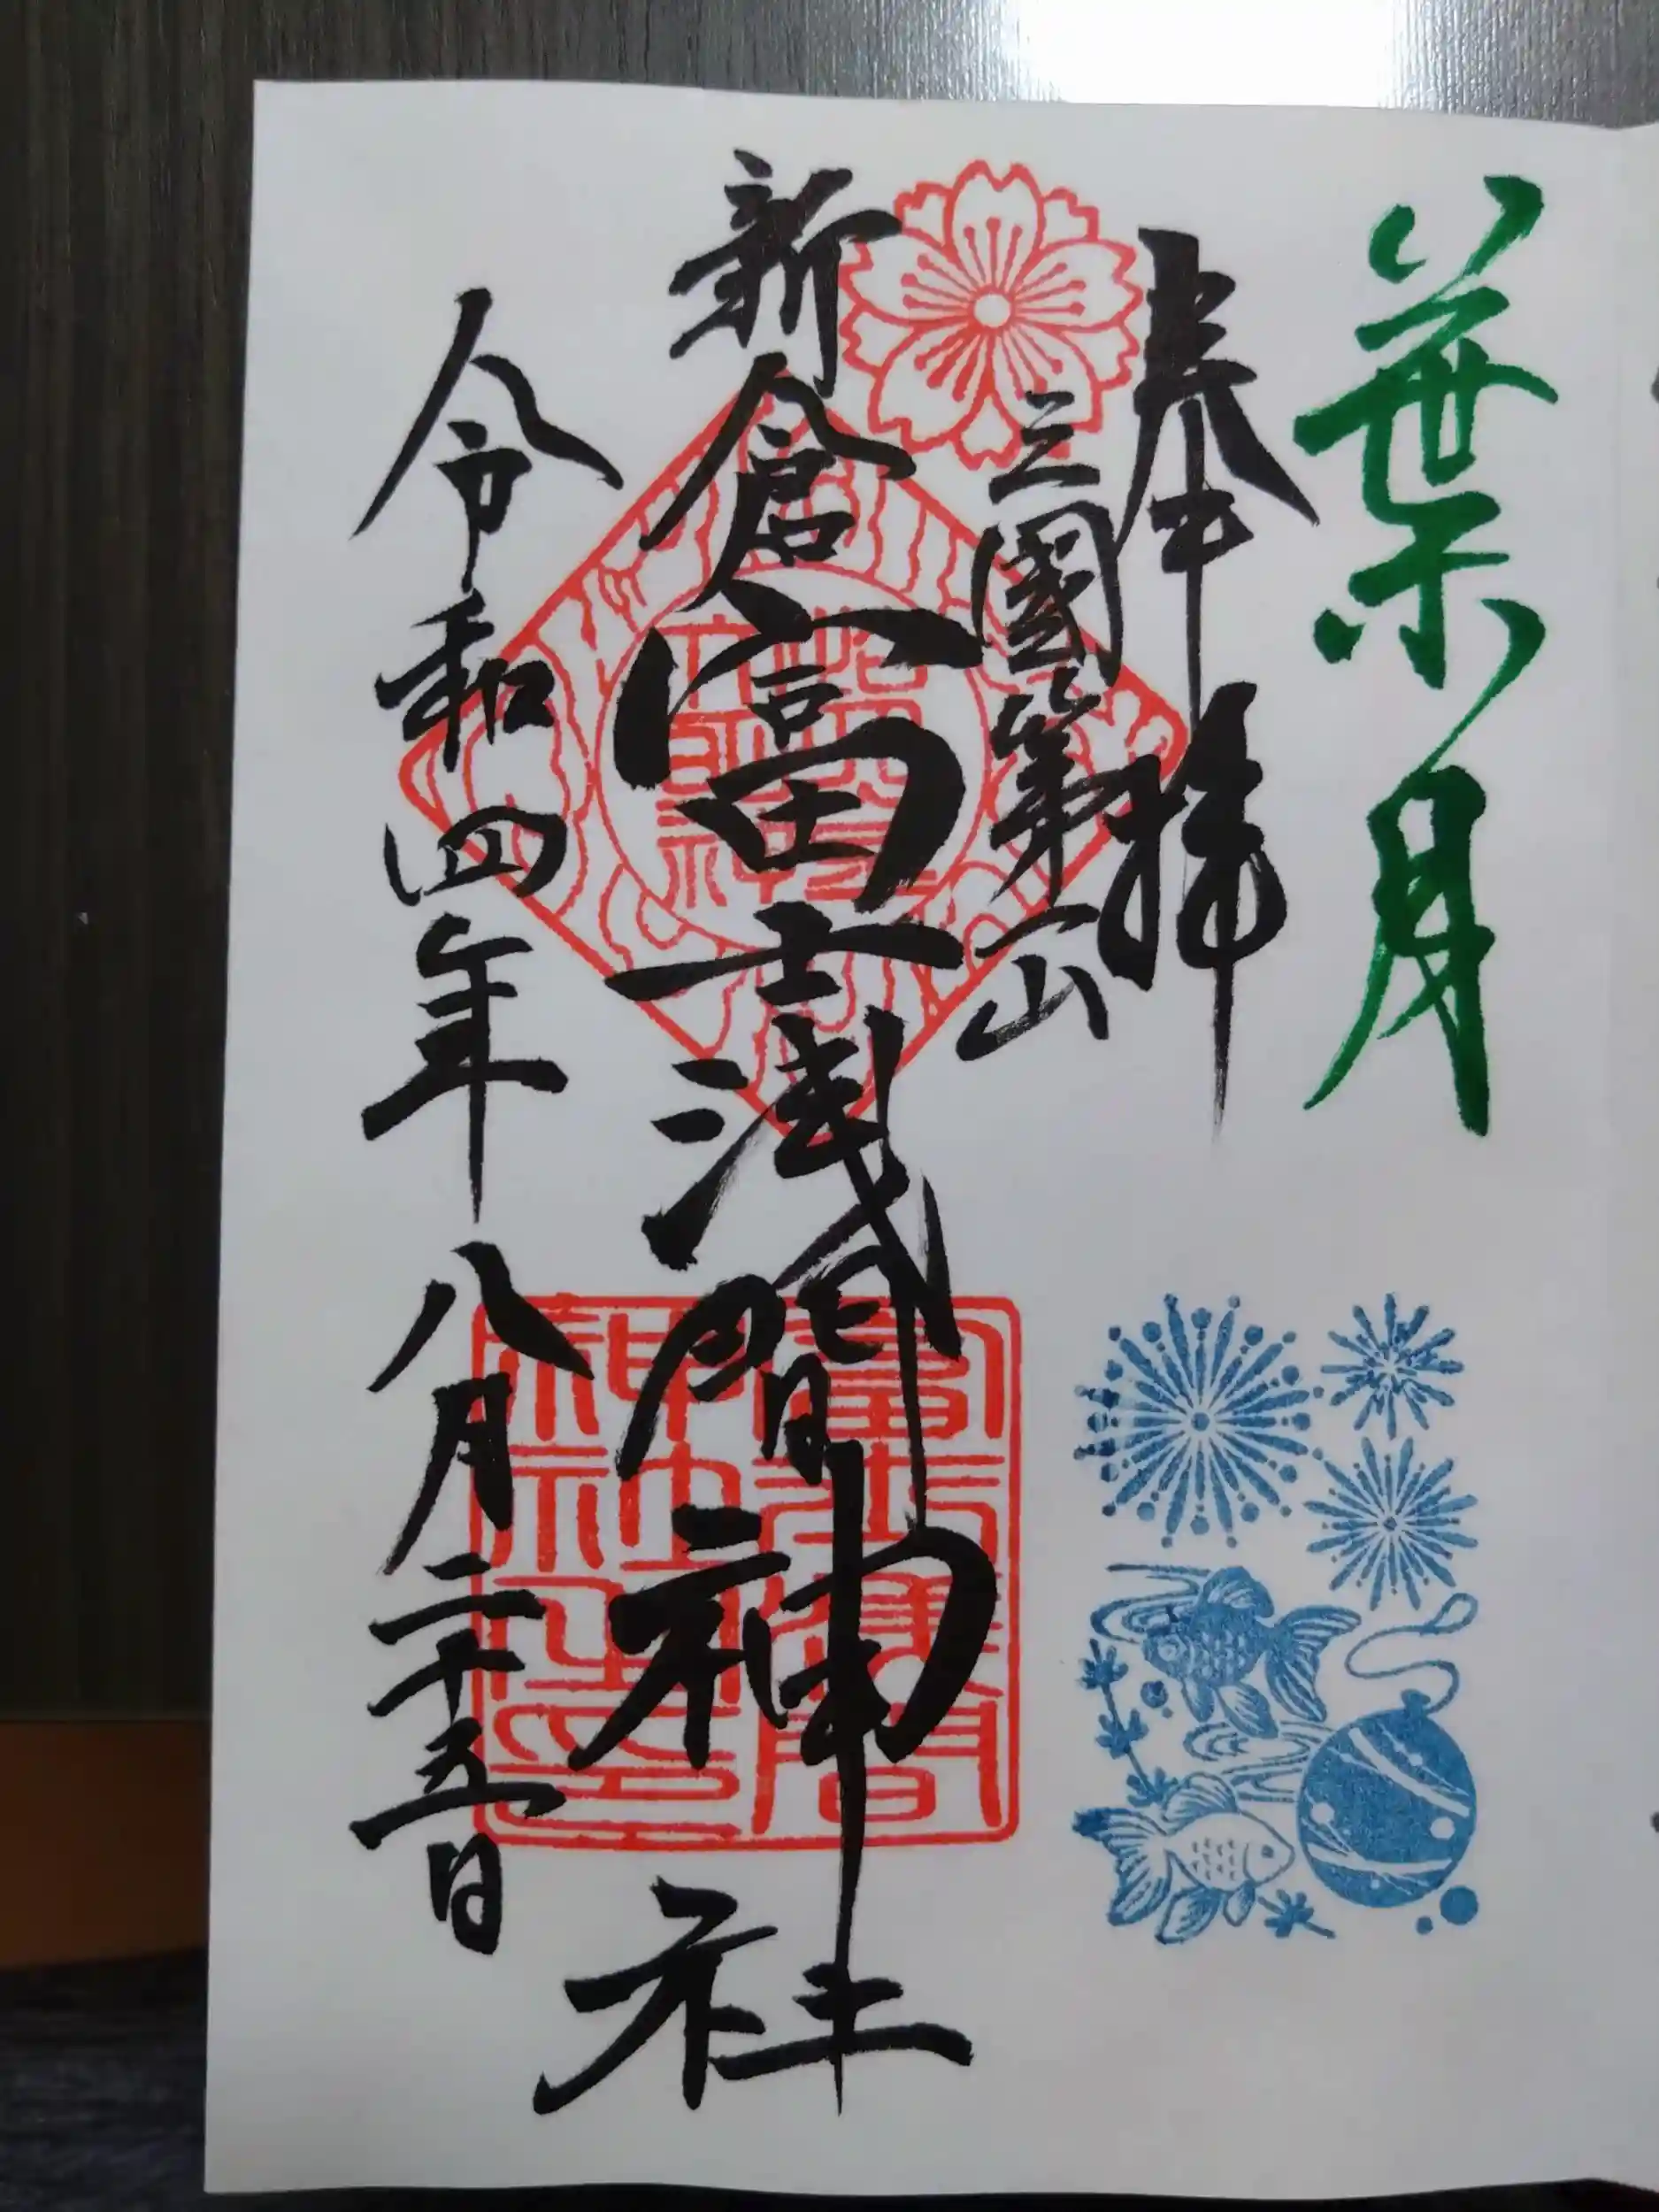 葉月
奉拝
三國第一山
新倉富士浅間神社
令和四年八月二十五日
富士浅間
神社之印